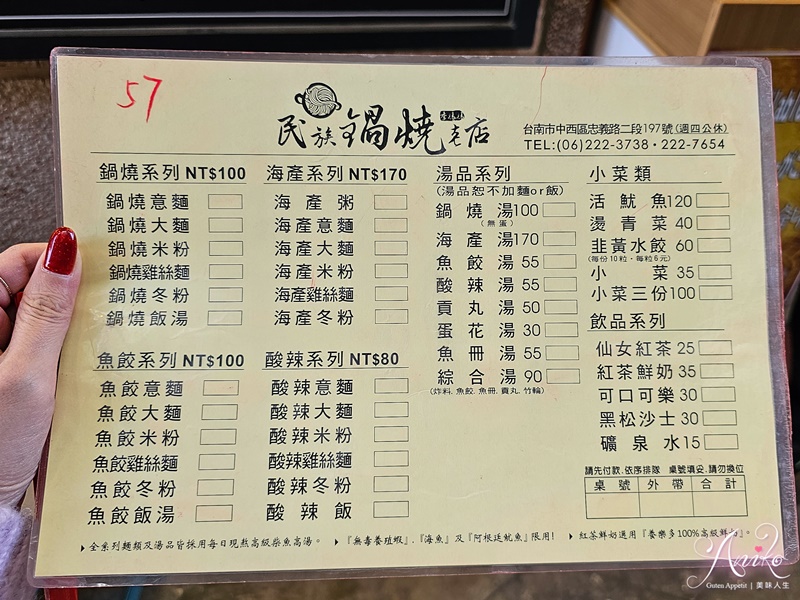 57
民族鍋燒老店
台南市中西區忠義路二段197號(週四公休)
TEL:(06)222-3738・222-7654
鍋燒系列 NT$100
鍋燒意麵
鍋燒大麵
鍋燒米粉
鍋燒雞絲麵
鍋燒冬粉
鍋燒飯湯
魚餃系列 NT$100
魚餃意麵
魚餃大麵
魚餃米粉
魚餃雞絲麵
魚餃冬粉
魚餃飯湯
海產系列 NT$170
海產粥
海產意麵
海產大麵
海產米粉
海產雞絲麵
海產冬粉
酸辣系列 NT$80
酸辣意麵
酸辣大麵
酸辣米粉
酸辣雞絲麵
酸辣冬粉
酸辣飯
湯品系列
(湯品恕不加麵or飯)
鍋燒湯100
(無蛋)
海產湯170
魚餃湯 55
酸辣湯 55
貢丸湯 50
蛋花湯 30
魚冊湯 55
綜合湯 90
(炸料.魚餃.魚冊.貢丸.竹輪)
小菜類
活魷魚120
燙青菜 40
韭黃水餃 60
(每份10粒,每粒6元)
小菜 35
小菜三份100
飲品系列
仙女紅茶 25
紅茶鮮奶 35
可口可樂 30
黑松沙士 30
礦泉水15
請先付款.依序排隊 桌號填妥.請勿換位
桌號 外帶 合計
▶全系列麵類及湯品皆採用每日現熬高級柴魚高湯。 ▶『無毒養殖蝦』.『海魚』及『阿根廷魷魚』限用! ▶紅茶鮮奶選用『養樂多100%高級鮮奶』。
Aniko
Guten Appetit | 美味人生